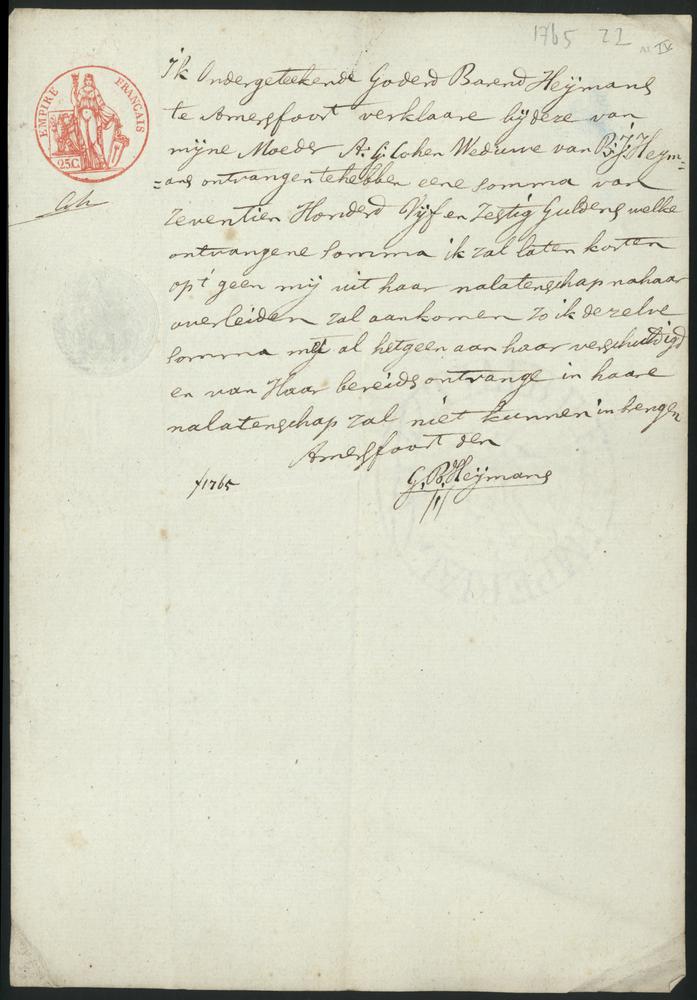 1765 22 N. IV
EMPIRE FRANÇAIS
25 C.
Ik Ondergeteekende Goderd Barend Heijmans
te Amersfoort verklaare bij deze van
mijne Moeder A: G: Cohen Weduwe van B: J: Heijm=
=ans ontvangen te hebben eene somma van
Zeventien Honderd Vijf en Zestig Guldens welke
ontvangene Somma ik zal laten korten
op 't geen mij uit haar nalatenschap na haar
overleiden zal aankomen zo ik dezelve
Somma mit al hetgeen aan haar verschuldigd
en van Haar bereids ontvange in haare
nalatenschap zal niet kunnen inbrengen
Amersfoort den
ƒ1765 G. B. Heijmans